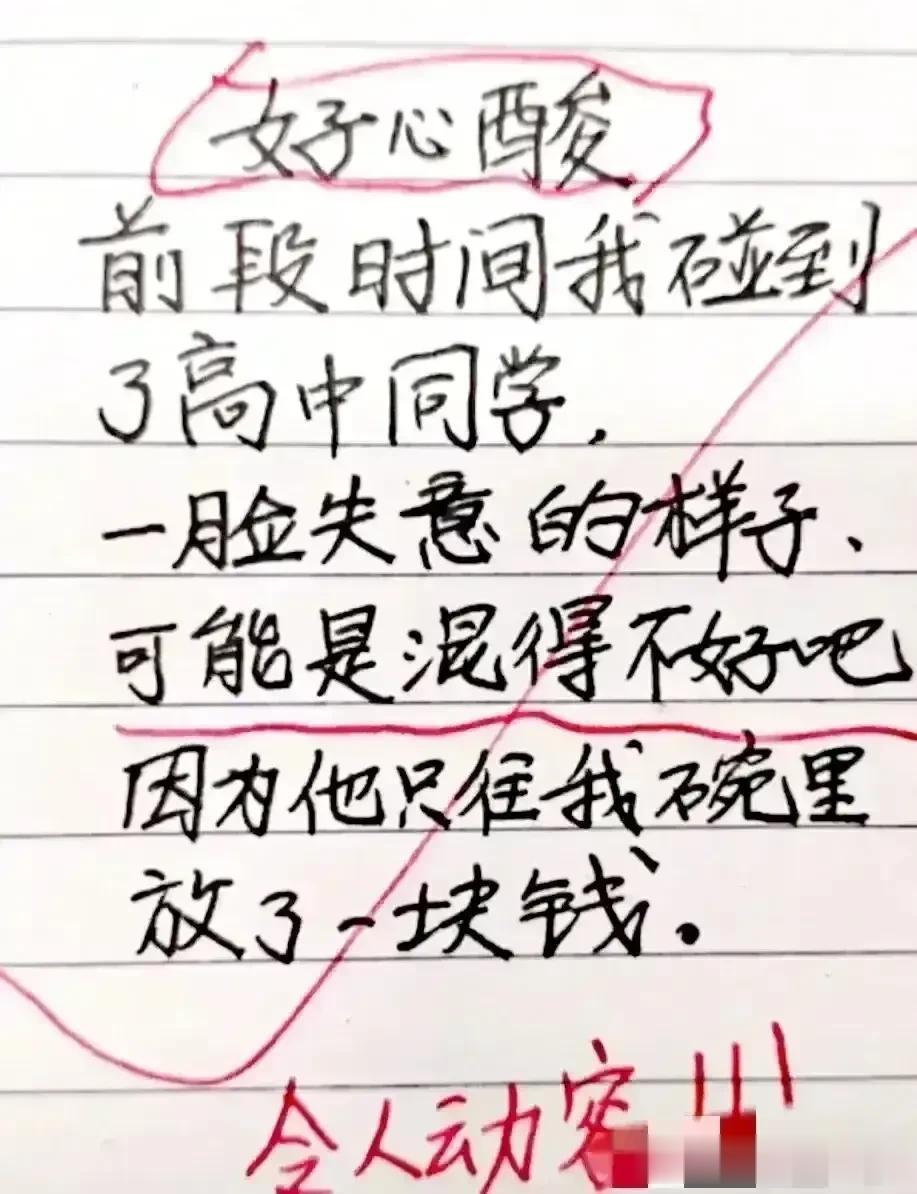 好心酸
前段时间我碰到
了高中同学.
一脸失意的样子、
可能是混得不好吧
因为他只往我碗里
放了一块钱.
令人动容!!!